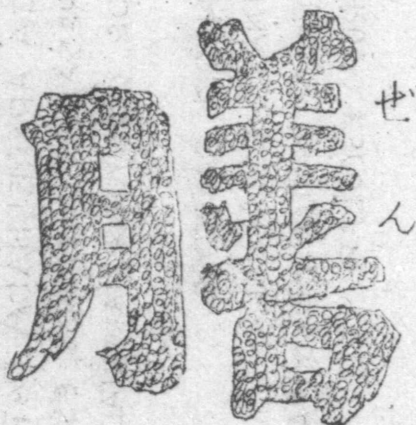 膳
ぜん